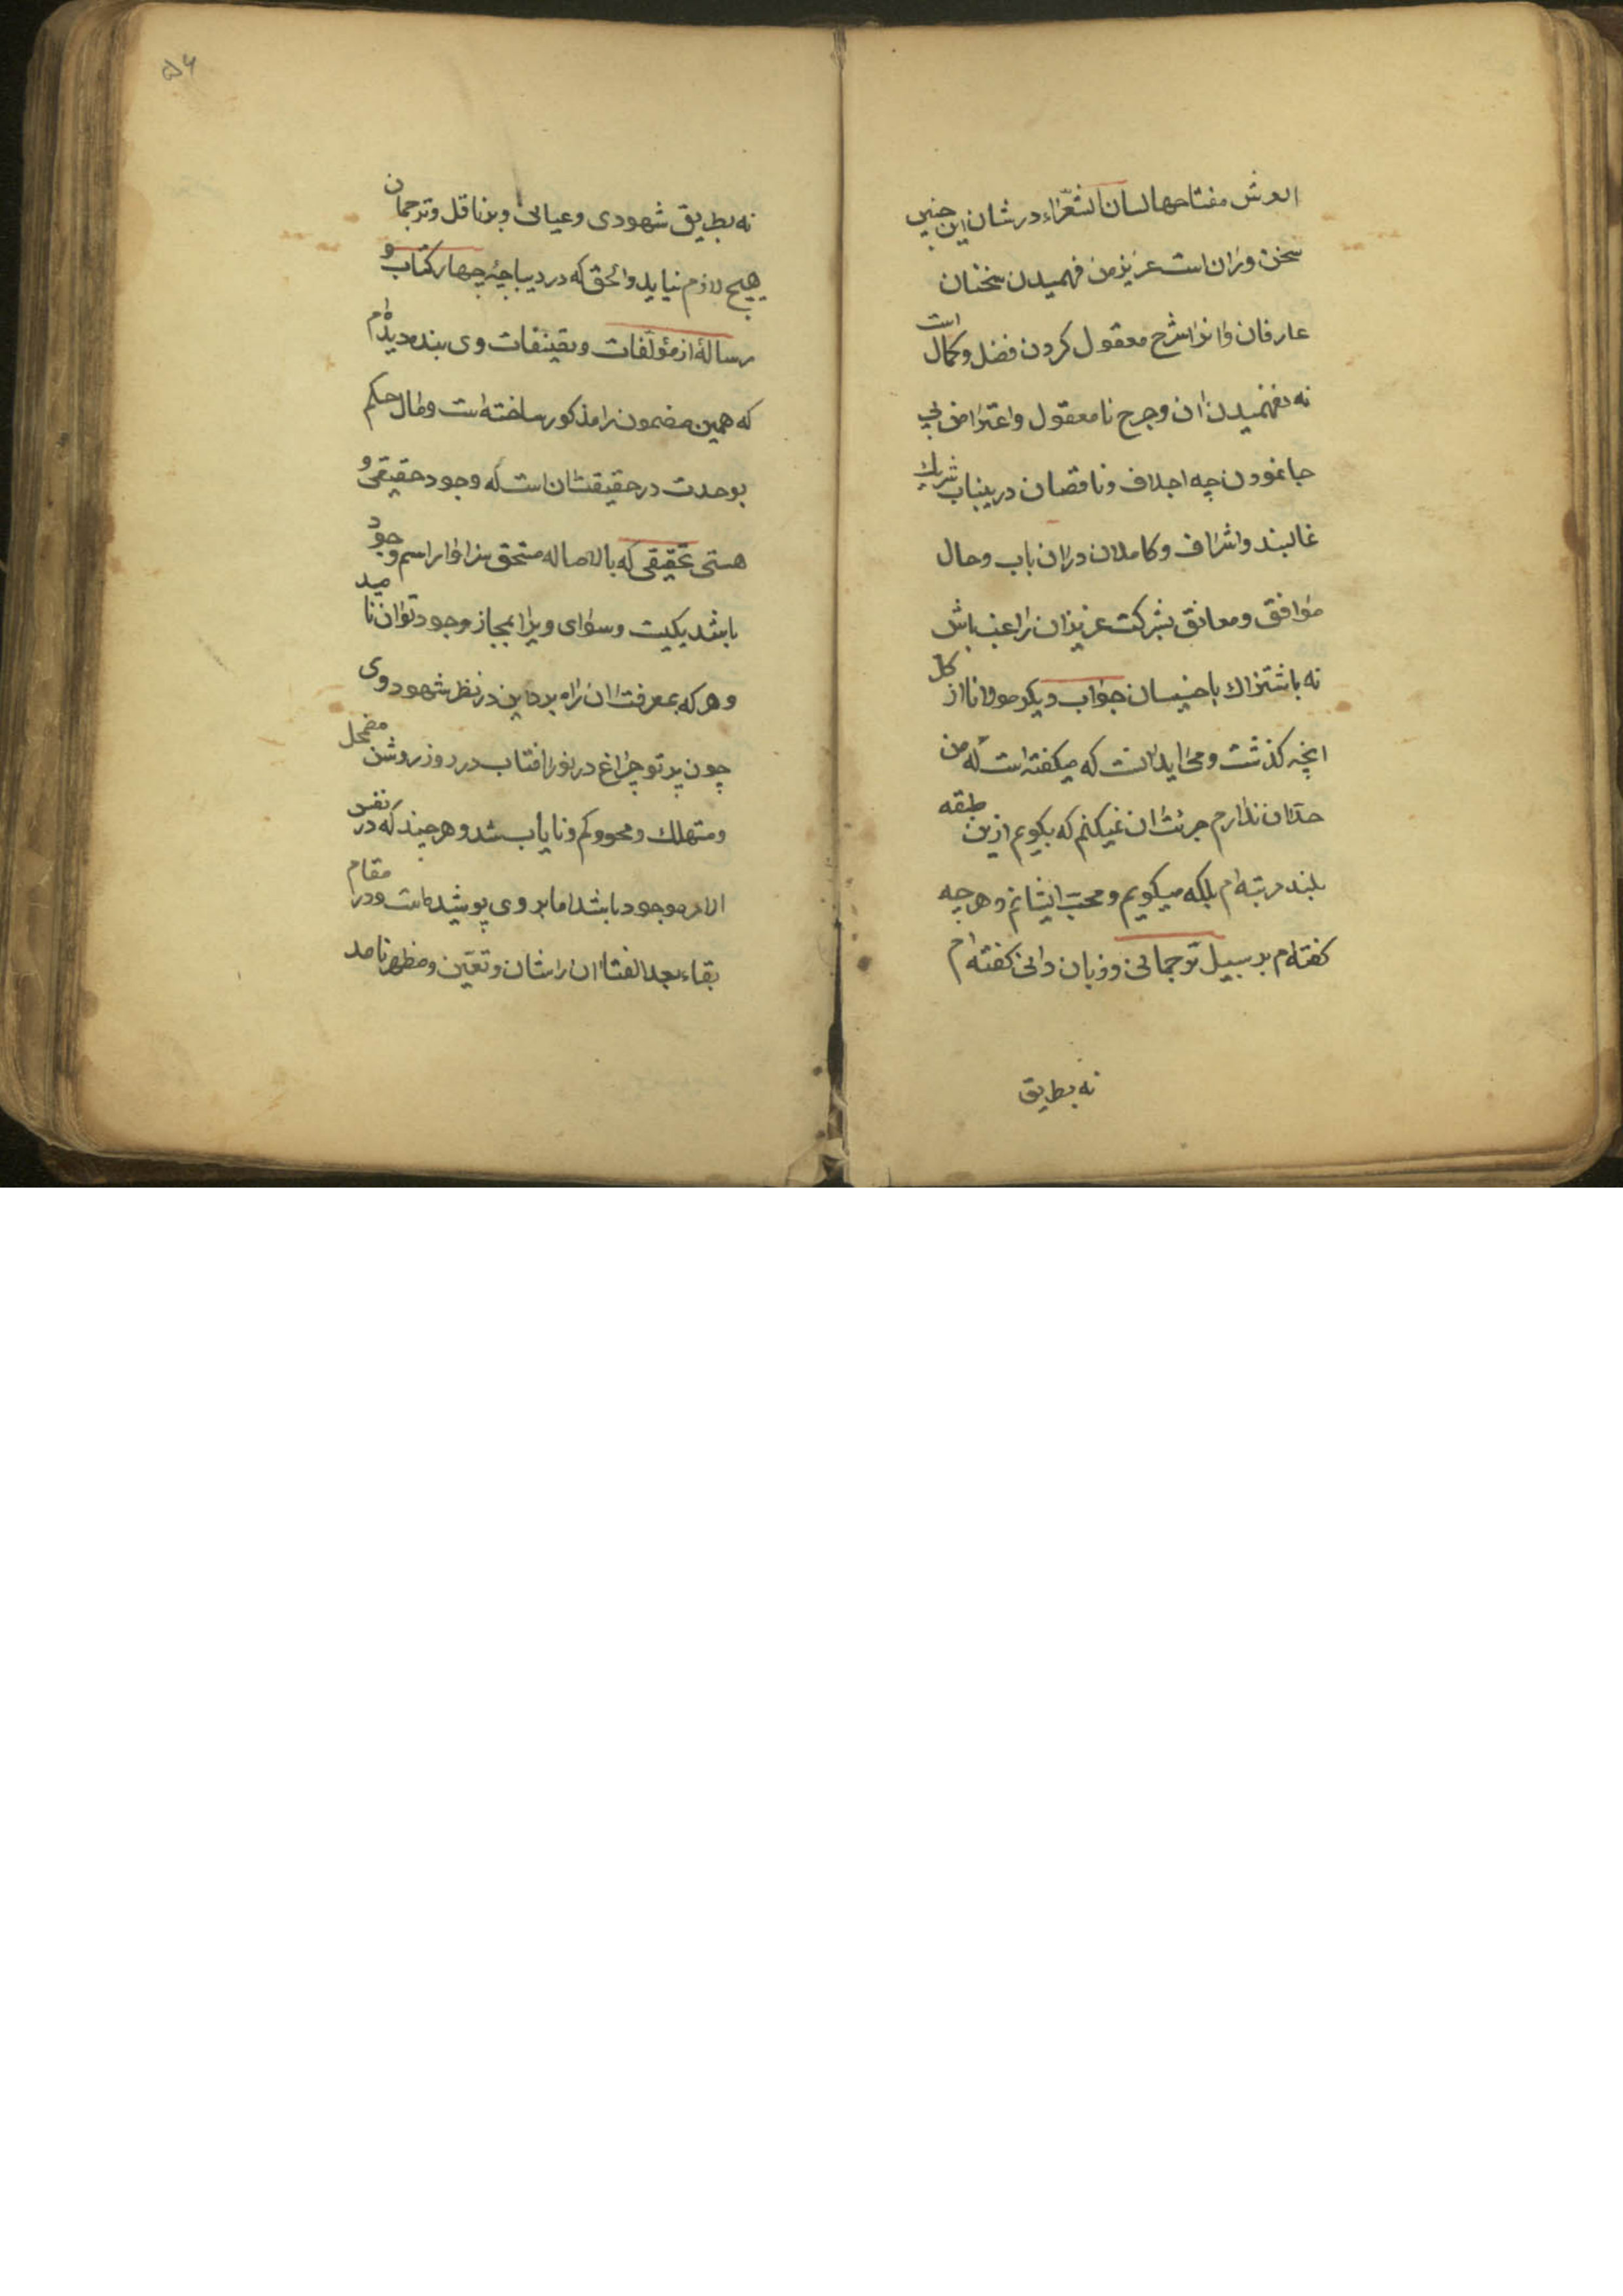 العرش مفتاحها لسان الشعراء در شان این چنین
سخن وران است عزیز من فهمیدن سخنان
عارفان و انرا شرح معقول کردن فضل و کمال است
نه نفهمیدن ان و جرح نامعقول و اعتراض بی
جا نمودن چه اجلاف و ناقصان درینباب شریک
غالبند و اشراف و کاملان دران باب و حال
موافق و معانق بشرکت عزیزان راغب باش
نه باشتراک با خسیسان جواب دیکر مولانا از کل
انچه کذشت و می اید انست که میکفته است که من
حد ان ندارم جرئت ان نمیکنم که بکویم ازین طبقه
بلند مرتبه ام بلکه میکویم و محب ایشانم و هرچه
کفته ام بر سبیل ترجمانی و زبان دانی کفته ام
نه بطریق
۵۶
نه بطریق شهودی و عیانی و بر ناقل و ترجمان
هیچ لازم نیاید و الحق که در دیباچهٔ چهار کتاب و
رسالهٔ از مؤلفات و تصنیفات وی بنده دیده ام
که همین مضمون را مذکور ساخته است و مال حکم
بوحدت در حقیقت ان است که وجود حقیقی و
هستی تحقیقی که بالاصاله مستحق سزاوار اسم وجود
باشد یکیست و سوای ویرا بمجاز موجود توان نامید
و هر که بمعرفت ان راه برد این در نظر شهود وی
چون پرتو چراغ در نور افتاب در روز روشن مضمحل
و متهلک و محو و کم و نایاب شد و هر چند که در نفس
الامر موجود باشد اما بر وی پوشیده است و در مقام
بقاء بعد الفنا ان را شان و تعین و مظهر نامد